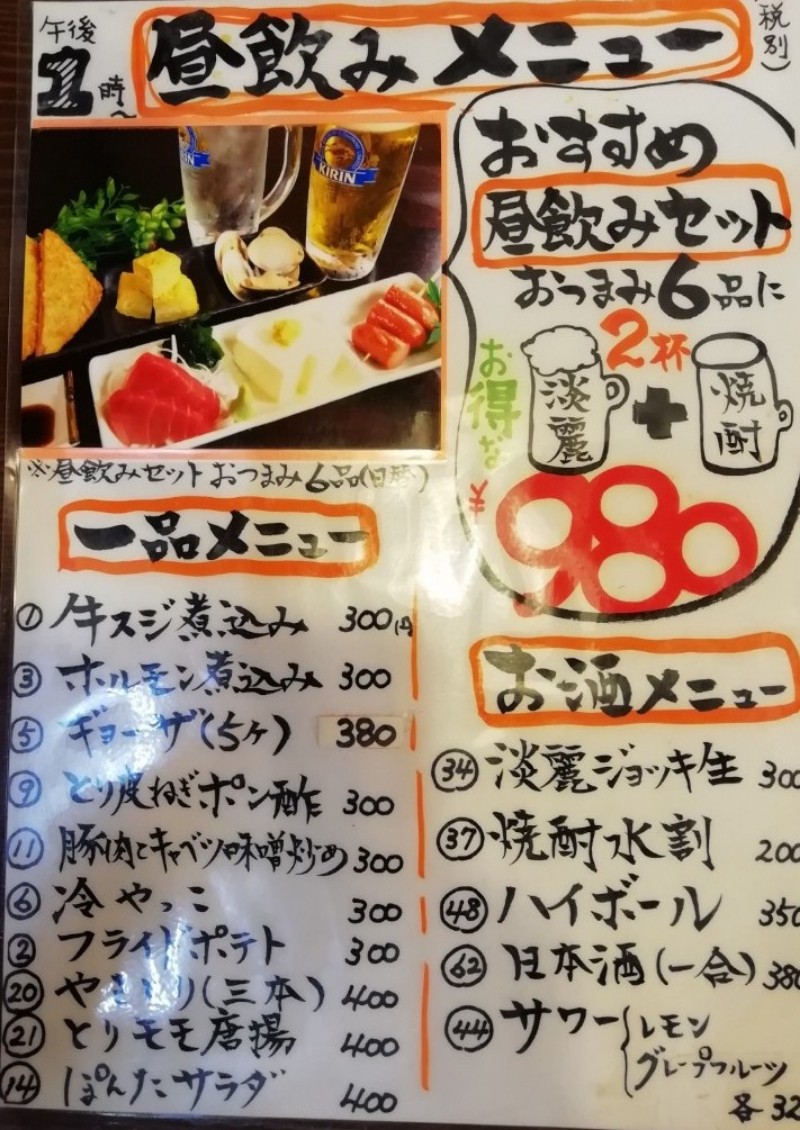 午後
1時〜
昼飲みメニュー
(税別)
KIRIN
おすすめ
昼飲みセット
おつまみ6品に
2杯
お得な
淡麗
+
焼酎
¥980
※昼飲みセット おつまみ6品(日替)
一品メニュー
① 牛スジ煮込み 300円
③ ホルモン煮込み 300
⑤ ギョーザ(5ヶ) 380
⑨ とり皮ねぎポン酢 300
⑪ 豚肉とキャベツ味噌炒め 300
⑥ 冷やっこ 300
② フライドポテト 300
⑳ やきとり(三本) 400
㉑ とりモモ唐揚 400
⑭ ぽんたサラダ 400
お酒メニュー
㉞ 淡麗ジョッキ生 300
㊲ 焼酎水割 200
㊽ ハイボール 350
62 日本酒(一合) 380
㊹ サワー レモン
グレープフルーツ
各32